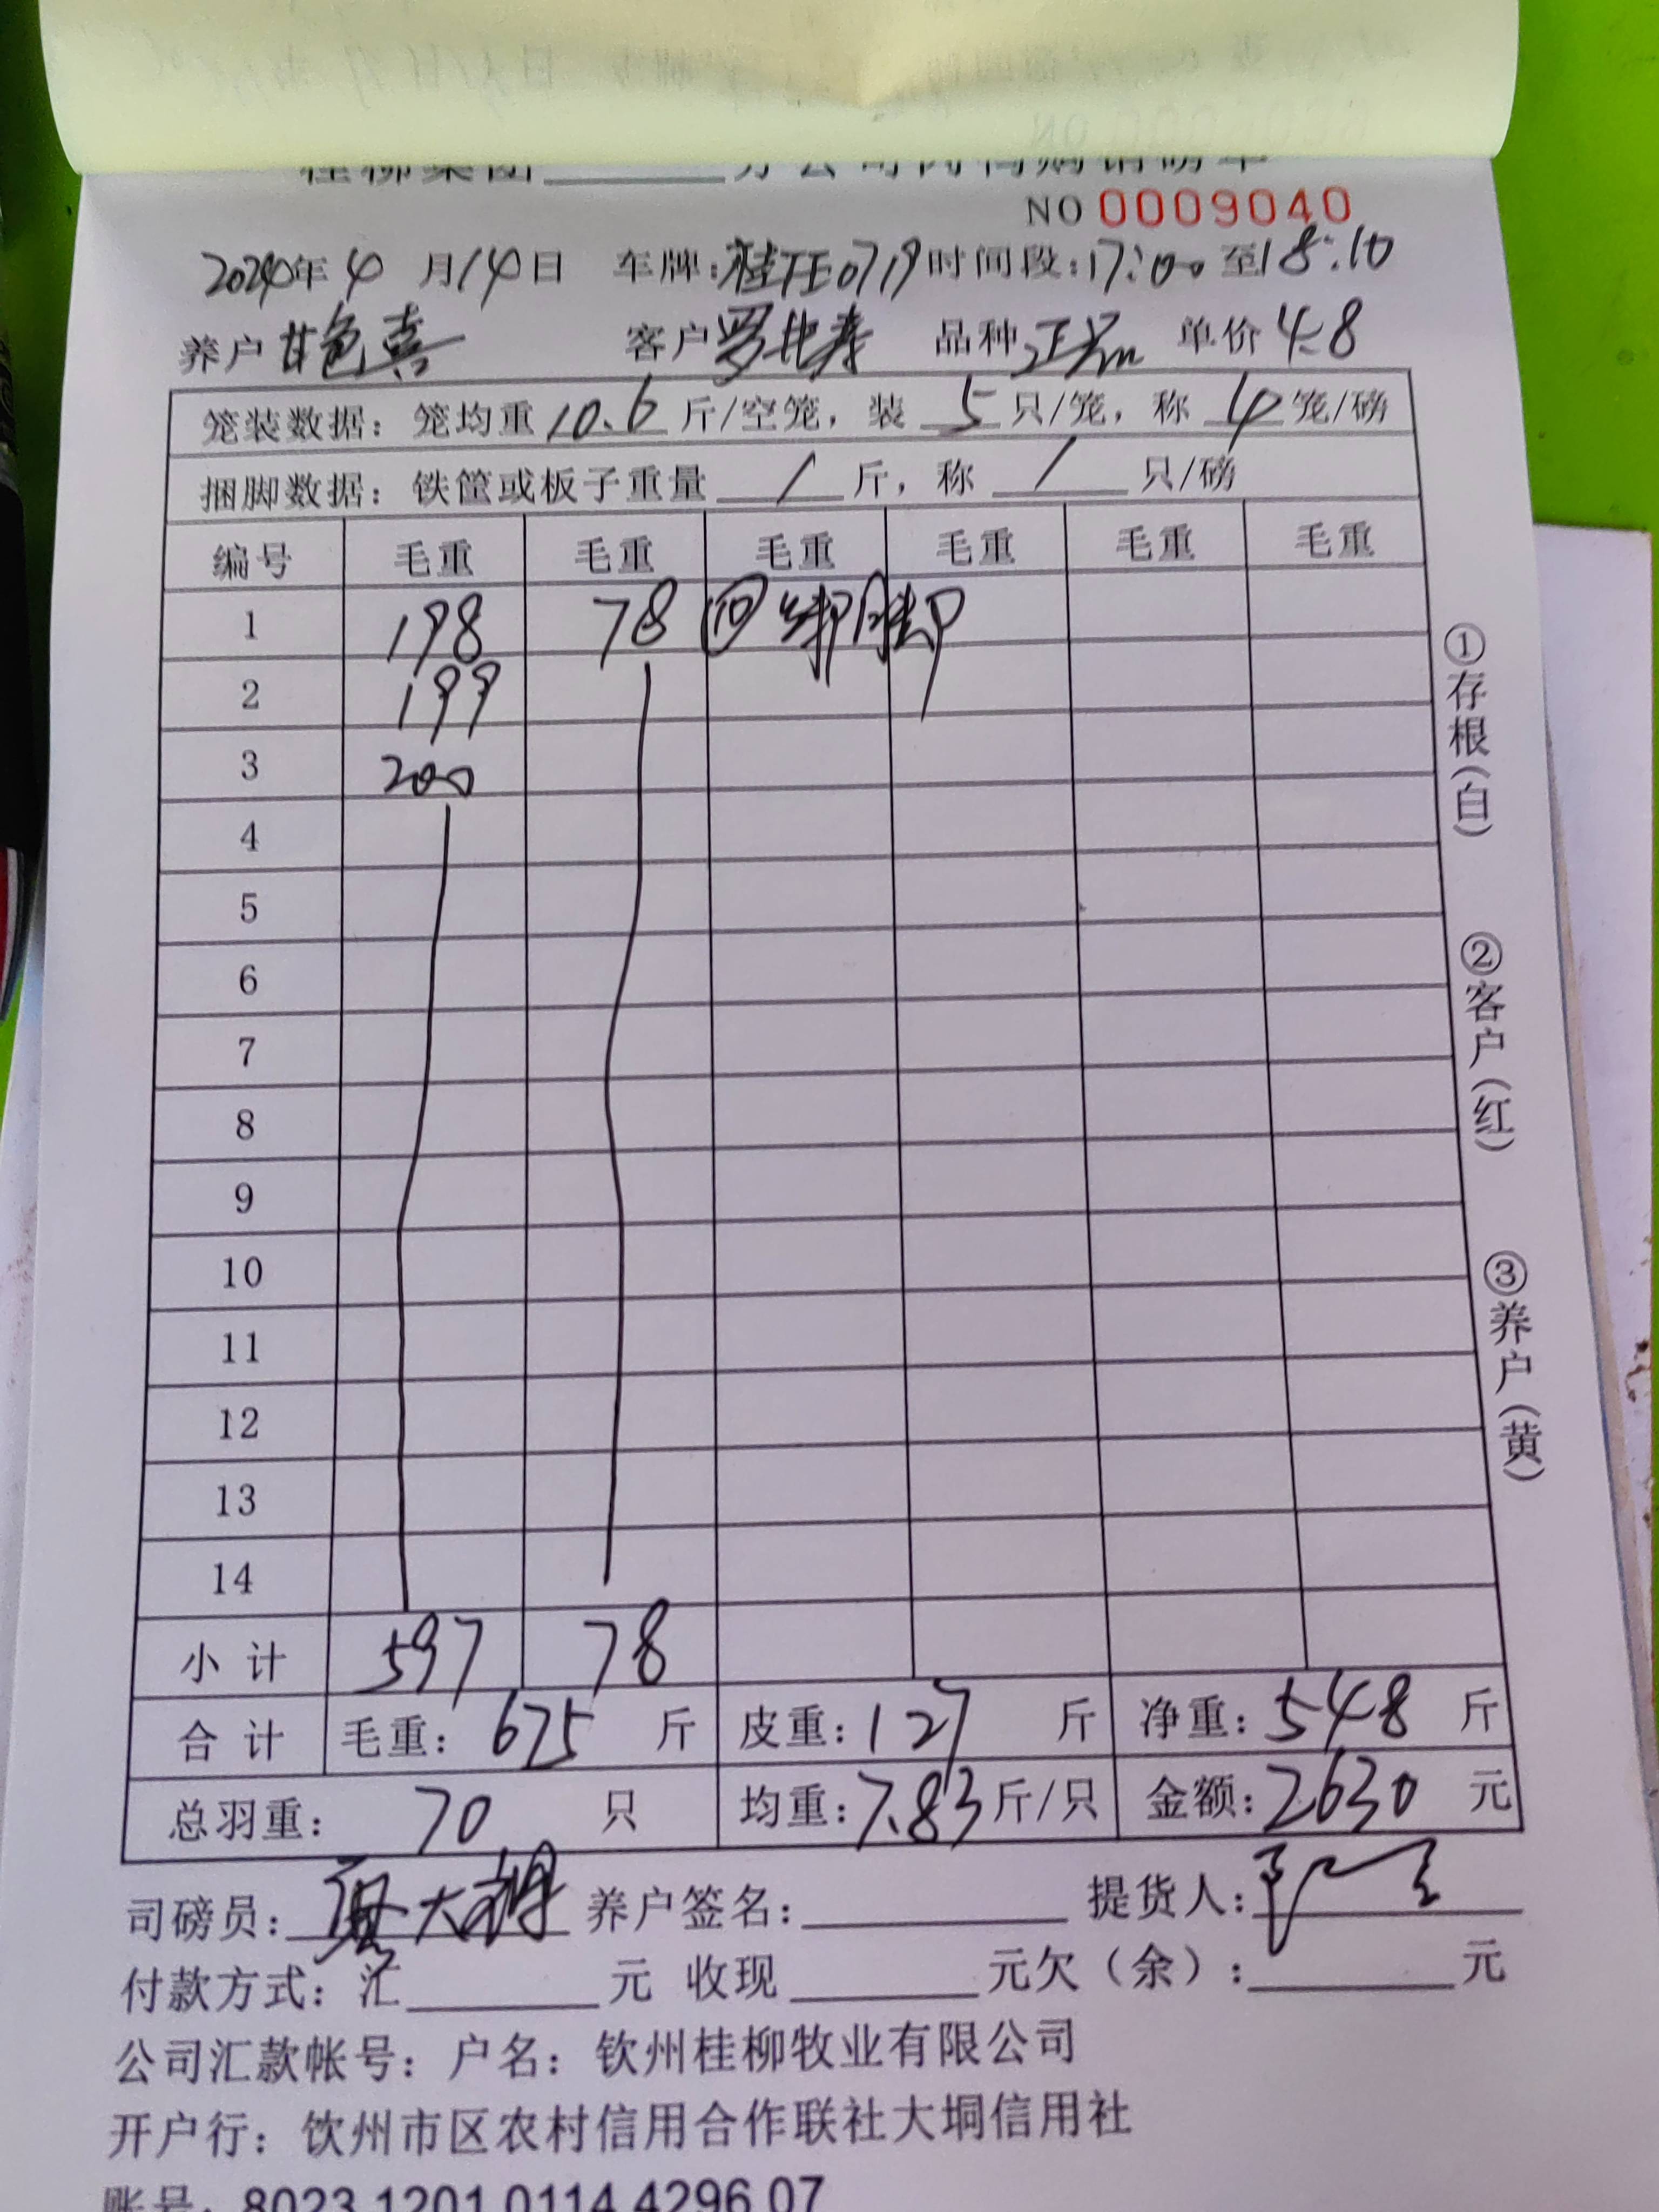 桂柳集团______分公司肉鸭购销磅单
NO 0009040
2024年4月14日 车牌:桂TE0719 时间段:17:00至18:10
养户 甘色喜 客户 罗 寿 品种 单价 4.8
笼装数据：笼均重 10.6 斤/空笼，装 5 只/笼，称 4 笼/磅
捆脚数据：铁筐或板子重量 / 斤，称 / 只/磅
编号 毛重 毛重 毛重 毛重 毛重 毛重
1 198 78 ⑩ 绑脚
2 199
3 200
4
5
6
7
8
9
10
11
12
13
14
小计 597 78
合计 毛重：675 斤 皮重：127 斤 净重：548 斤
总羽重：70 只 均重：7.83 斤/只 金额：2630 元
司磅员： 大 养户签名：______ 提货人：
付款方式：汇______元 收现______元欠（余）：______元
公司汇款帐号：户名：钦州桂柳牧业有限公司
开户行：钦州市区农村信用合作联社大垌信用社
账号：8023 1201 0114 4296 07
①存根(白)
②客户(红)
③养户(黄)